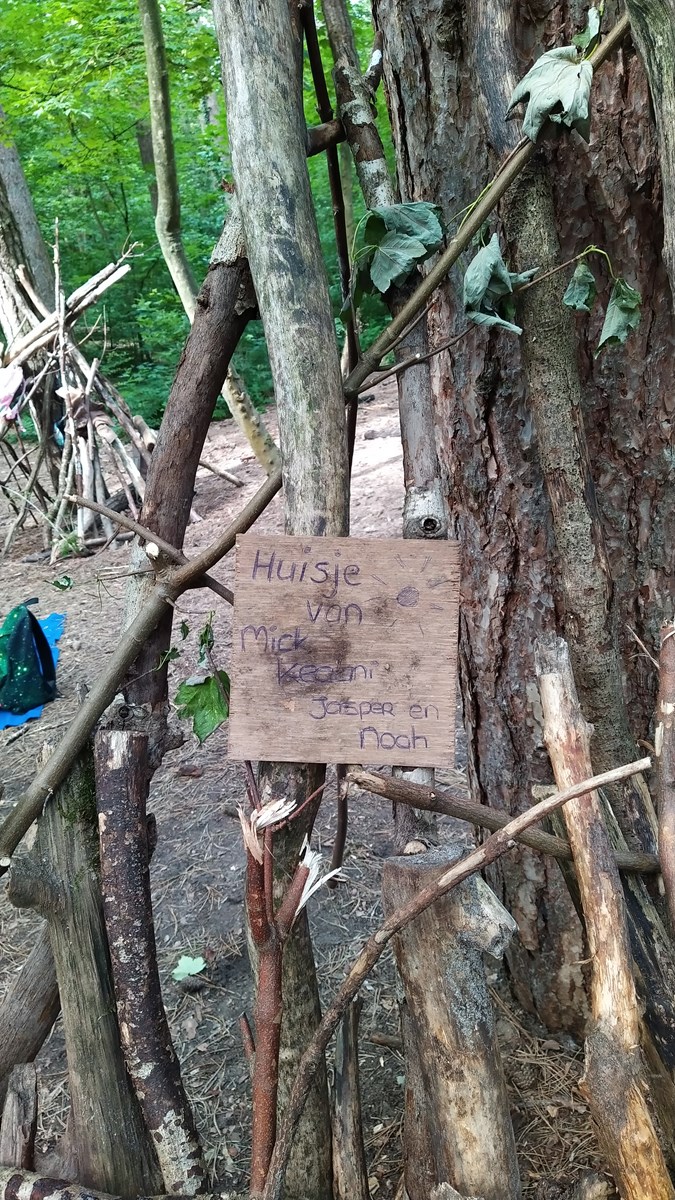 Huisje
van
Mick
Keaani
Jasper en
Noah